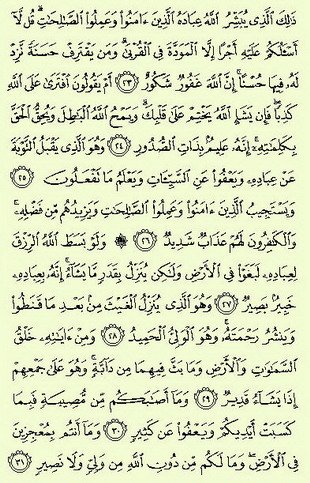 ذَٰلِكَ ٱلَّذِى يُبَشِّرُ ٱللَّهُ عِبَادَهُ ٱلَّذِينَ ءَامَنُوا۟ وَعَمِلُوا۟ ٱلصَّٰلِحَٰتِ ۗ قُل لَّآ
أَسْـَٔلُكُمْ عَلَيْهِ أَجْرًا إِلَّا ٱلْمَوَدَّةَ فِى ٱلْقُرْبَىٰ ۗ وَمَن يَقْتَرِفْ حَسَنَةً نَّزِدْ
لَهُۥ فِيهَا حُسْنًا ۚ إِنَّ ٱللَّهَ غَفُورٌ شَكُورٌ ٢٣ أَمْ يَقُولُونَ ٱفْتَرَىٰ عَلَى ٱللَّهِ
كَذِبًا ۖ فَإِن يَشَإِ ٱللَّهُ يَخْتِمْ عَلَىٰ قَلْبِكَ ۗ وَيَمْحُ ٱللَّهُ ٱلْبَٰطِلَ وَيُحِقُّ ٱلْحَقَّ
بِكَلِمَٰتِهِۦٓ ۚ إِنَّهُۥ عَلِيمٌۢ بِذَاتِ ٱلصُّدُورِ ٢٤ وَهُوَ ٱلَّذِى يَقْبَلُ ٱلتَّوْبَةَ
عَنْ عِبَادِهِۦ وَيَعْفُوا۟ عَنِ ٱلسَّيِّـَٔاتِ وَيَعْلَمُ مَا تَفْعَلُونَ ٢٥
وَيَسْتَجِيبُ ٱلَّذِينَ ءَامَنُوا۟ وَعَمِلُوا۟ ٱلصَّٰلِحَٰتِ وَيَزِيدُهُم مِّن فَضْلِهِۦ ۚ
وَٱلْكَٰفِرُونَ لَهُمْ عَذَابٌ شَدِيدٌ ٢٦ ۞ وَلَوْ بَسَطَ ٱللَّهُ ٱلرِّزْقَ
لِعِبَادِهِۦ لَبَغَوْا۟ فِى ٱلْأَرْضِ وَلَٰكِن يُنَزِّلُ بِقَدَرٍ مَّا يَشَآءُ ۚ إِنَّهُۥ بِعِبَادِهِۦ
خَبِيرٌۢ بَصِيرٌ ٢٧ وَهُوَ ٱلَّذِى يُنَزِّلُ ٱلْغَيْثَ مِنۢ بَعْدِ مَا قَنَطُوا۟
وَيَنشُرُ رَحْمَتَهُۥ ۚ وَهُوَ ٱلْوَلِىُّ ٱلْحَمِيدُ ٢٨ وَمِنْ ءَايَٰتِهِۦ خَلْقُ
ٱلسَّمَٰوَٰتِ وَٱلْأَرْضِ وَمَا بَثَّ فِيهِمَا مِن دَآبَّةٍ ۚ وَهُوَ عَلَىٰ جَمْعِهِمْ
إِذَا يَشَآءُ قَدِيرٌ ٢٩ وَمَآ أَصَٰبَكُم مِّن مُّصِيبَةٍ فَبِمَا
كَسَبَتْ أَيْدِيكُمْ وَيَعْفُوا۟ عَن كَثِيرٍ ٣٠ وَمَآ أَنتُم بِمُعْجِزِينَ
فِى ٱلْأَرْضِ ۖ وَمَا لَكُم مِّن دُونِ ٱللَّهِ مِن وَلِىٍّ وَلَا نَصِيرٍ ٣١